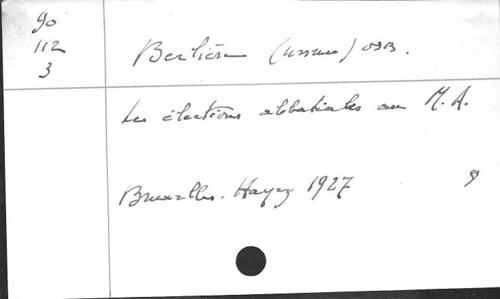 90
112
3
Berlière (Ursmer) OSB.
Les élections abbatiales au M. A.
Bruxelles - Hayez 1927